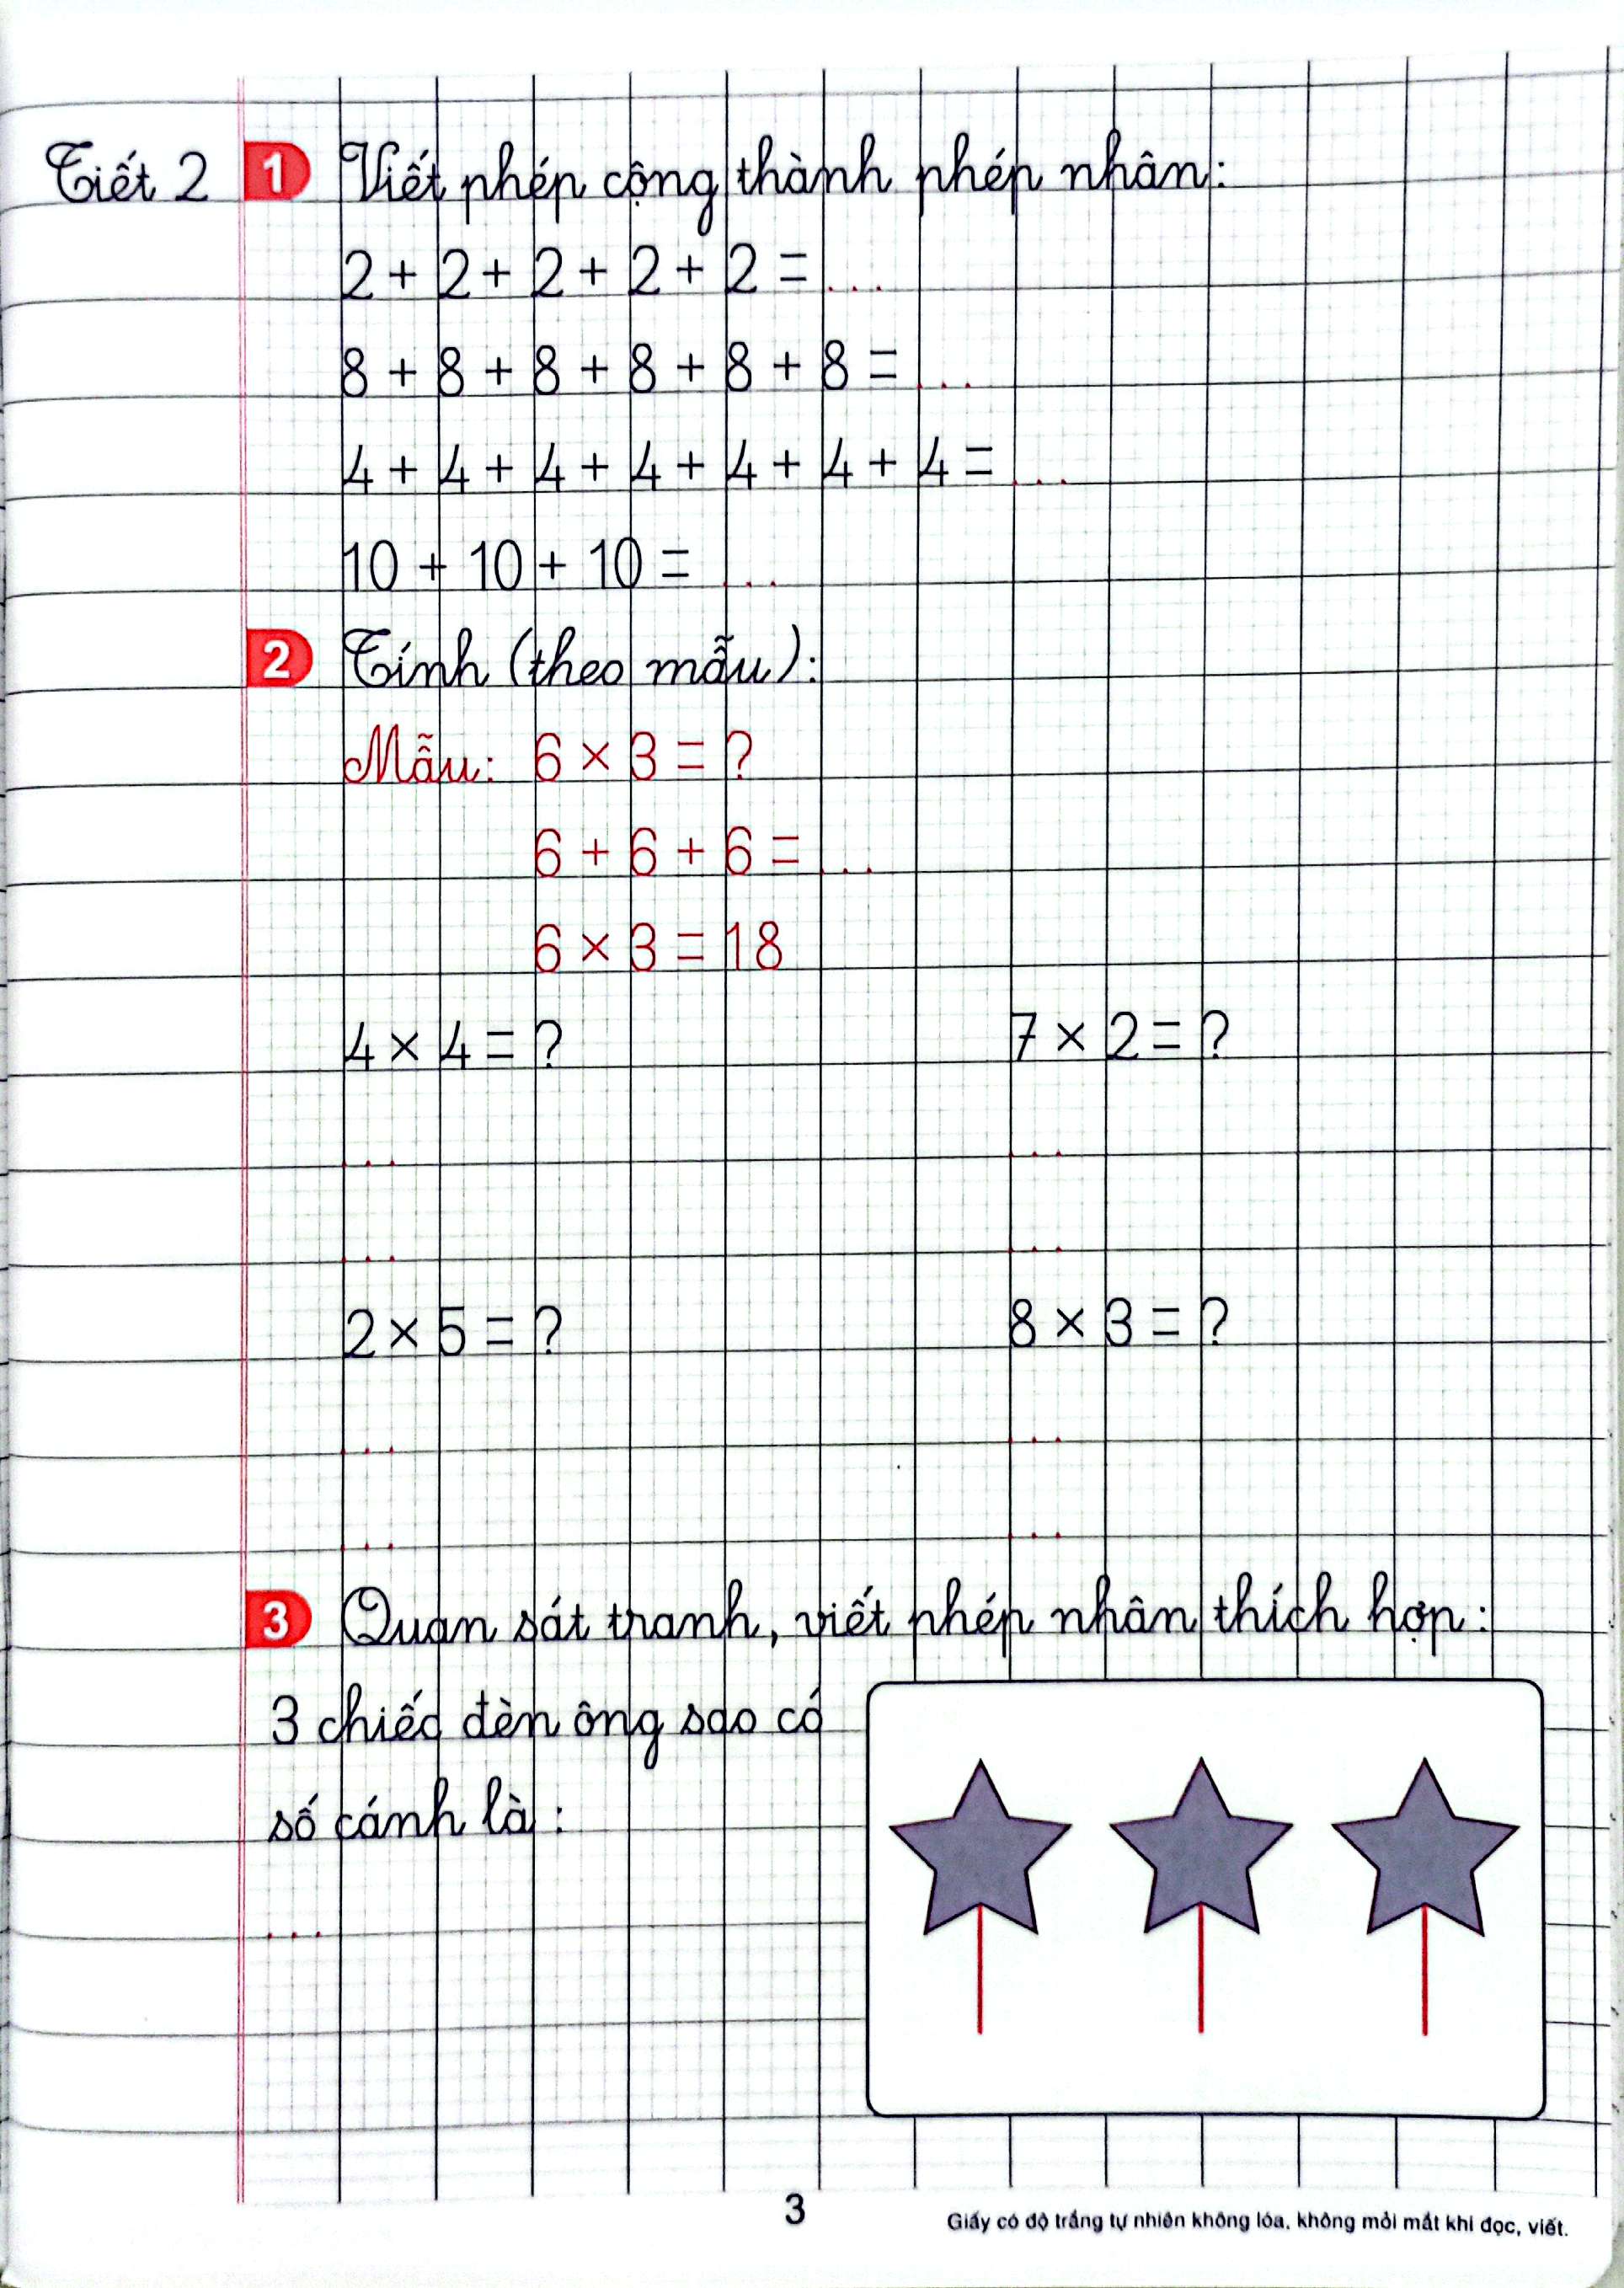 Tiết 2 1 Viết phép cộng thành phép nhân:
2 + 2 + 2 + 2 + 2 = ...
8 + 8 + 8 + 8 + 8 + 8 = ...
4 + 4 + 4 + 4 + 4 + 4 + 4 = ...
10 + 10 + 10 = ...
2 Tính (theo mẫu):
Mẫu: 6 × 3 = ?
6 + 6 + 6 = ...
6 × 3 = 18
4 × 4 = ? 7 × 2 = ?
... ...
... ...
2 × 5 = ? 8 × 3 = ?
... ...
... ...
3 Quan sát tranh, viết phép nhân thích hợp:
3 chiếc đèn ông sao có
số cánh là:
...
3
Giấy có độ trắng tự nhiên không lóa, không mỏi mắt khi đọc, viết.